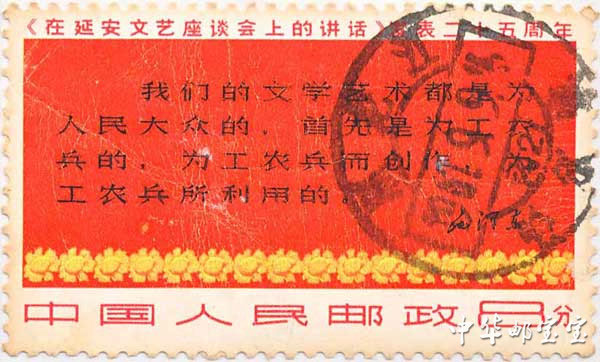 《在延安文艺座谈会上的讲话》发表二十五周年
我们的文学艺术都是为
人民大众的，首先是为工农
兵的，为工农兵而创作，为
工农兵所利用的。
毛泽东
中国人民邮政8分
中华邮宝宝